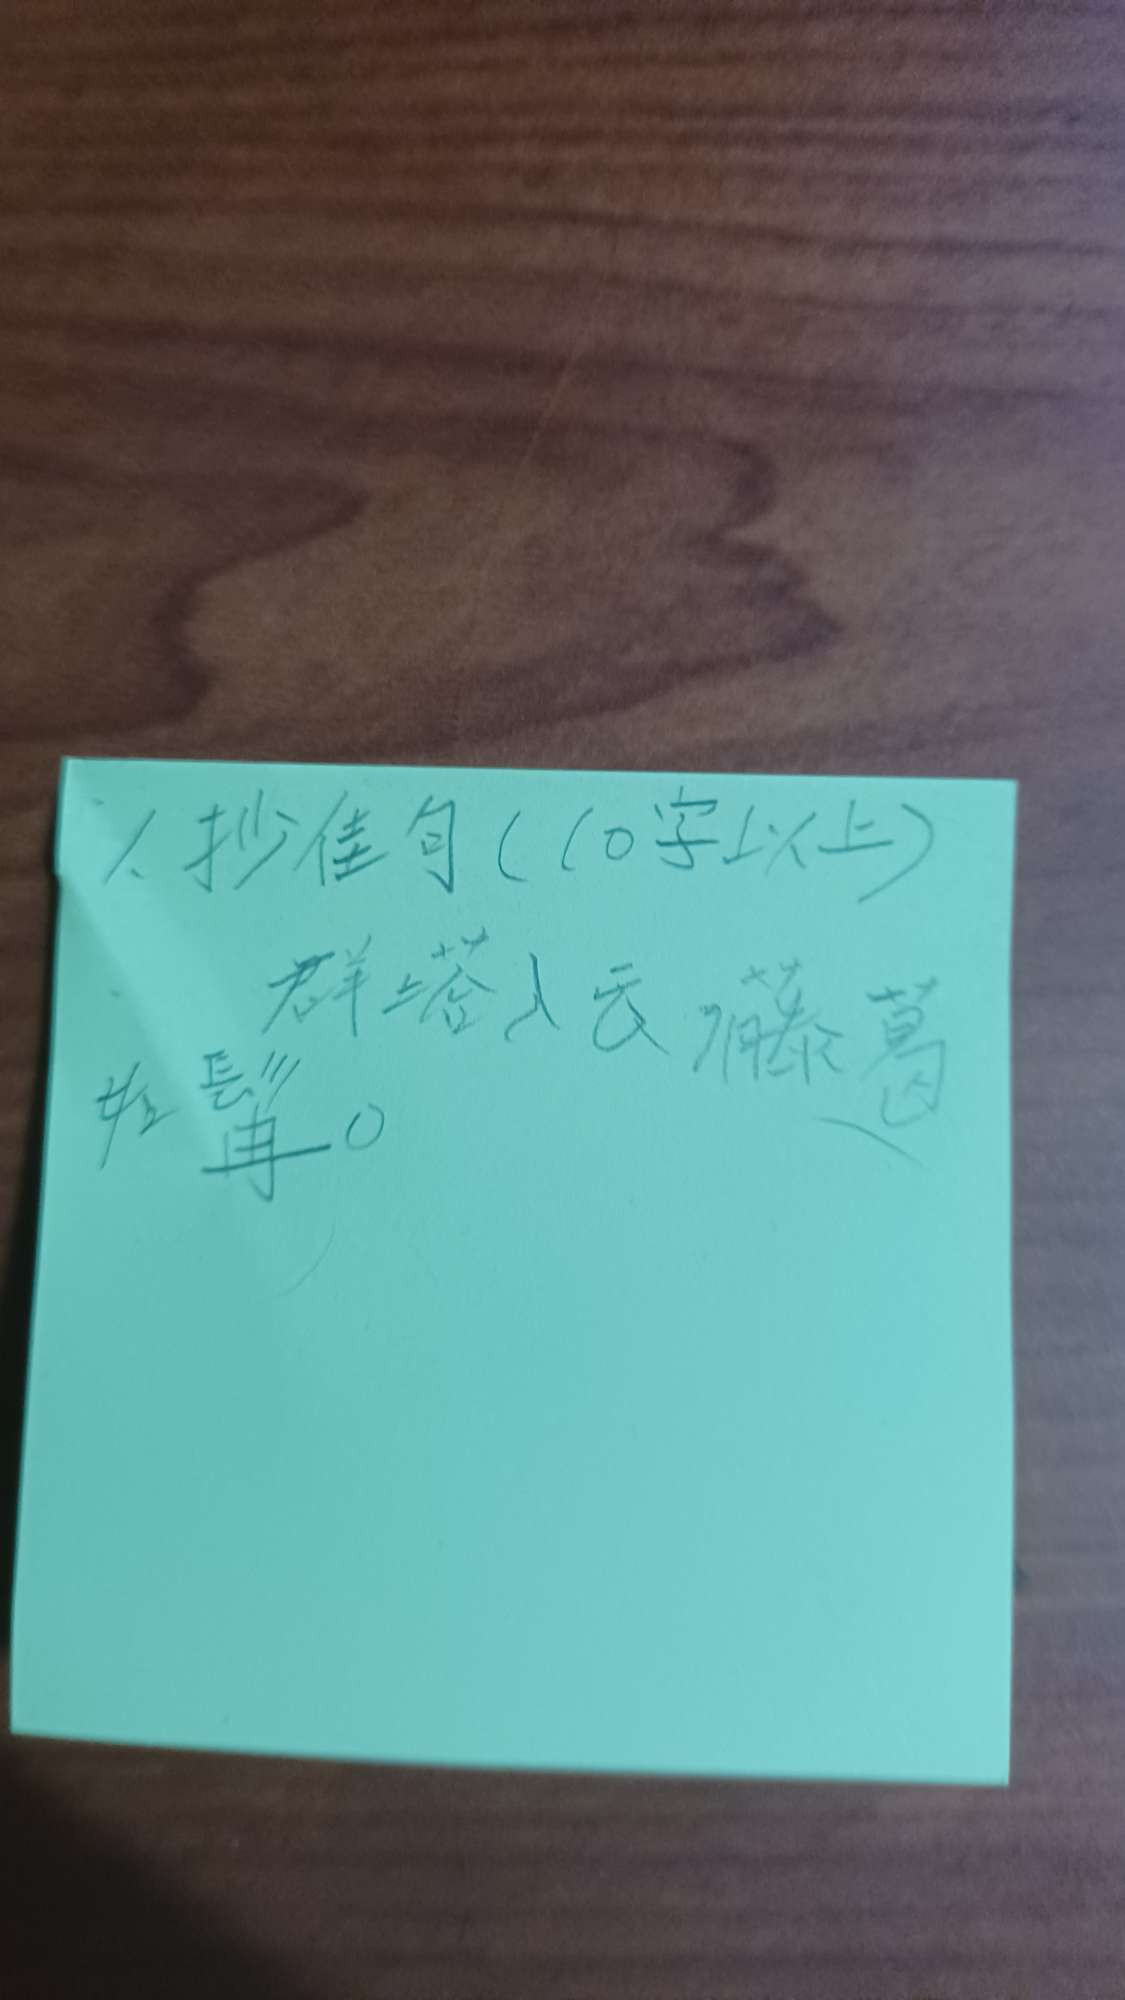 1.抄佳句(10字以上)
群塔入云藤葛
如髯。